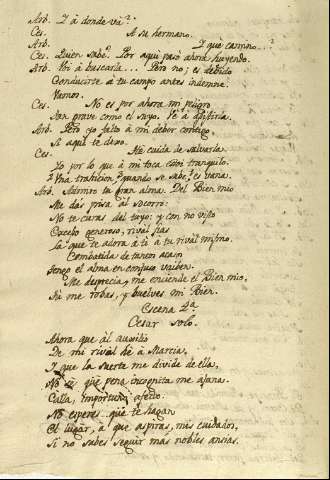 Arb. Y á donde vá?
Ces. A su hermano.
Arb. Y que camino...?
Ces. Quien sabe? Por aqui pasó ahora huyendo.
Arb. Voi á buscarla... Pero no; es debido
Conducirte á tu campo antes indemne.
Vamos.
Ces. No es por ahora mi peligro
Tan grave como el suyo. Ve á asistirla.
Arb. Pero yo falto á mi deber contigo
Si aqui te dexo.
Ces. Tu cuida de salvarla.
Yo por lo que á mi toca estoi tranquilo.
Una traicion, quando se sabe, es vana.
Arb. Admiro tu gran alma. Del Bien mio
Me dás prisa al socorro:
No te curas del tuyo; y con no visto
Exceso generoso, rival fias
la que te adora á ti á tu rival mismo.
Combatida de tantos
tengo el alma en confuso vaiven.
Me desprecia, me enciende el Bien mio,
Tu me robas, y buelves mi Bien.
Escena 2ª
Cesar solo.
Ahora que al auxilio
De mi rival hé á Marcia,
Y que la suerte me divide de ella,
No sé que pena incognita me afana.
Calla, importuno afecto.
No esperes que te hagan
El lugar, á que aspiras, mis cuidados,
Si no sabes seguir mas nobles ansias.